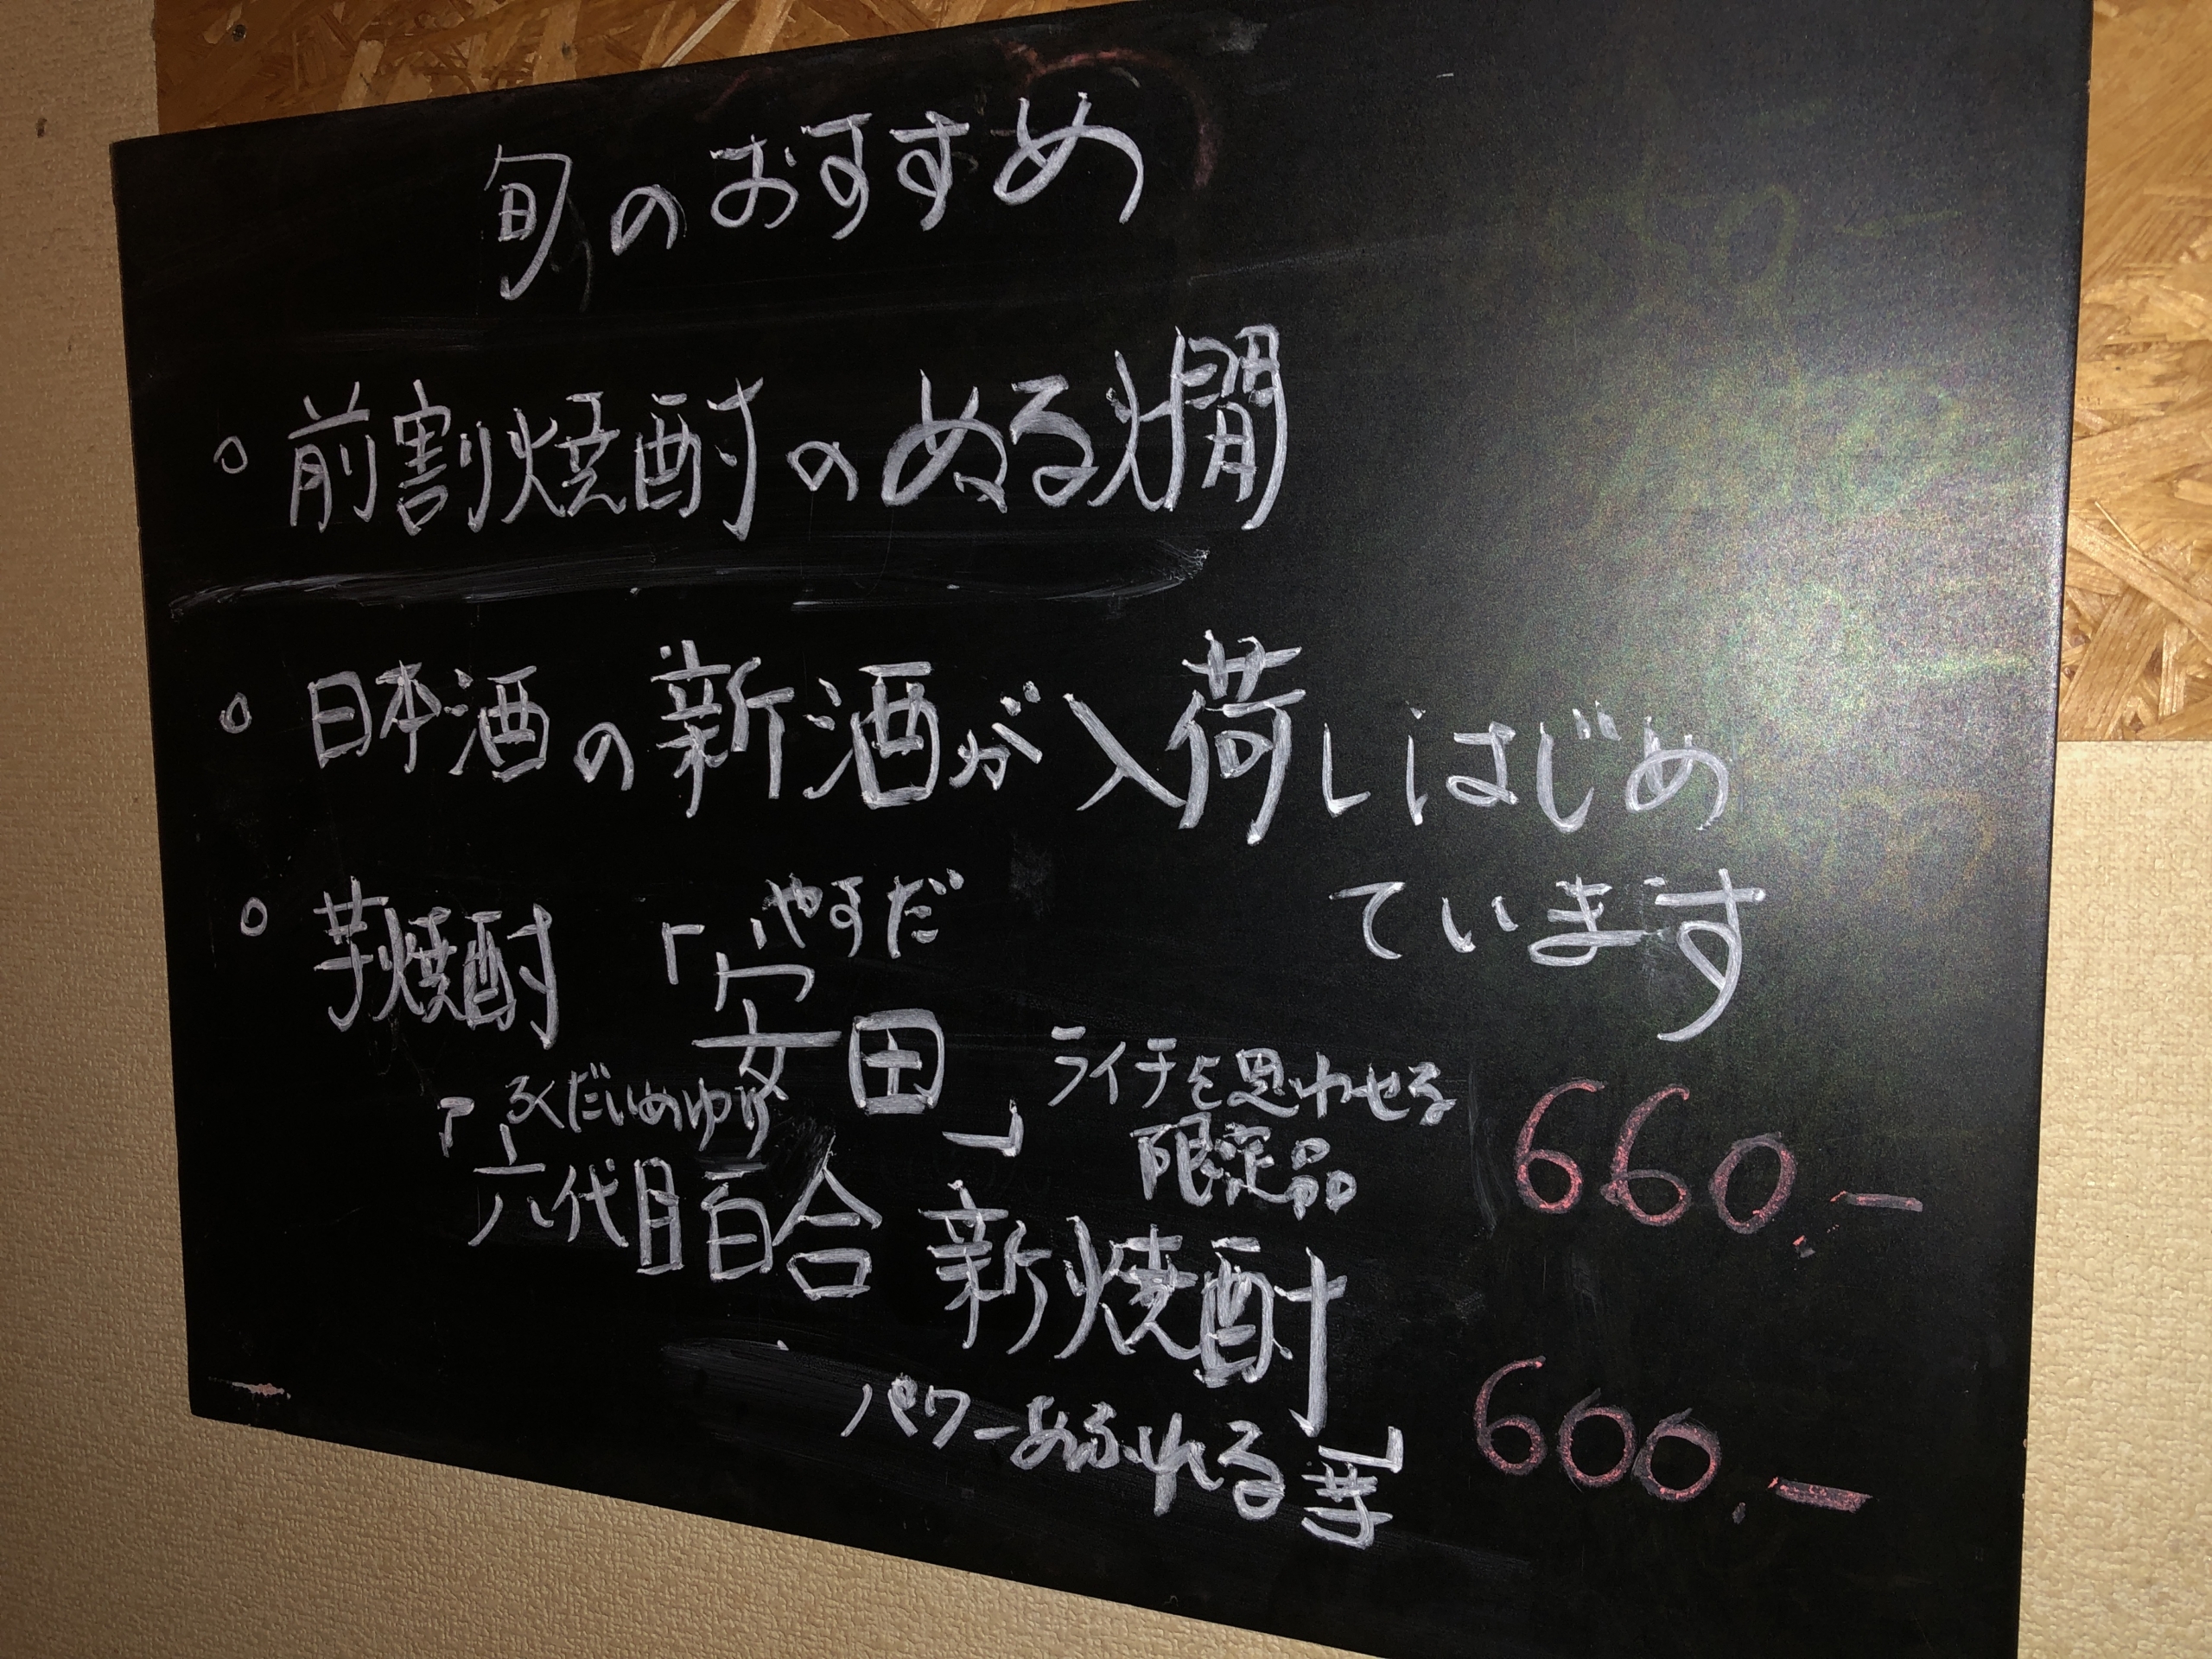 旬のおすすめ
○ 前割焼酎のぬる燗
○ 日本酒の新酒が入荷しはじめ
ています
○ 芋焼酎 「安田」
やすだ
ライチを思わせる
限定品
660.-
ろくだいめゆり
「六代目百合 新焼酎」
パワーあふれる芋
600.-